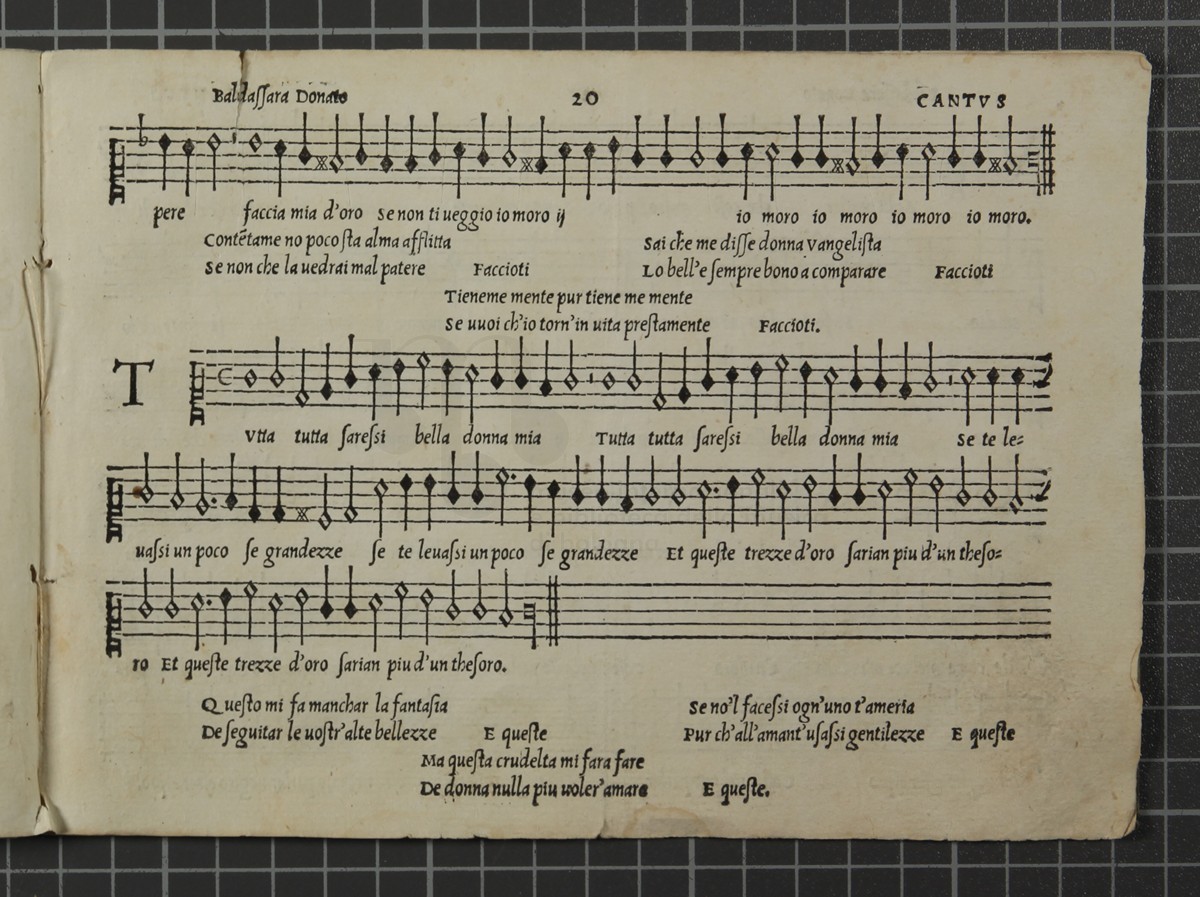 Baldaſſara Donato 20 CANTVS
pere faccia mia d'oro Se non ti ueggio io moro ij io moro io moro io moro io moro.
Contētame no poco ſta alma afflitta Sai che me diſſe donna vangeliſta
Se non che la uedrai mal patere Faccioti Lo bell'e ſempre bono a comparare Faccioti
Tieneme mente pur tiene me mente
Se uuoi ch'io torn'in uita preſtamente Faccioti.
T
Vtta tutta ſareſsi bella donna mia Tutta tutta ſareſsi bella donna mia Se te le=
uaſsi un poco ſe grandezze ſe te leuaſsi un poco ſe grandezze Et queſte trezze d'oro ſarian piu d'un theſo=
ro Et queſte trezze d'oro ſarian piu d'un theſoro.
Queſto mi fa manchar la fantaſia Se no'l faceſsi ogn'uno t'ameria
De ſeguitar le uoſtr'alte bellezze E queſte Pur ch'all'amant'uſaſsi gentilezze E queſte
Ma queſta crudelta mi fara fare
De donna nulla piu uoler'amare E queſte.